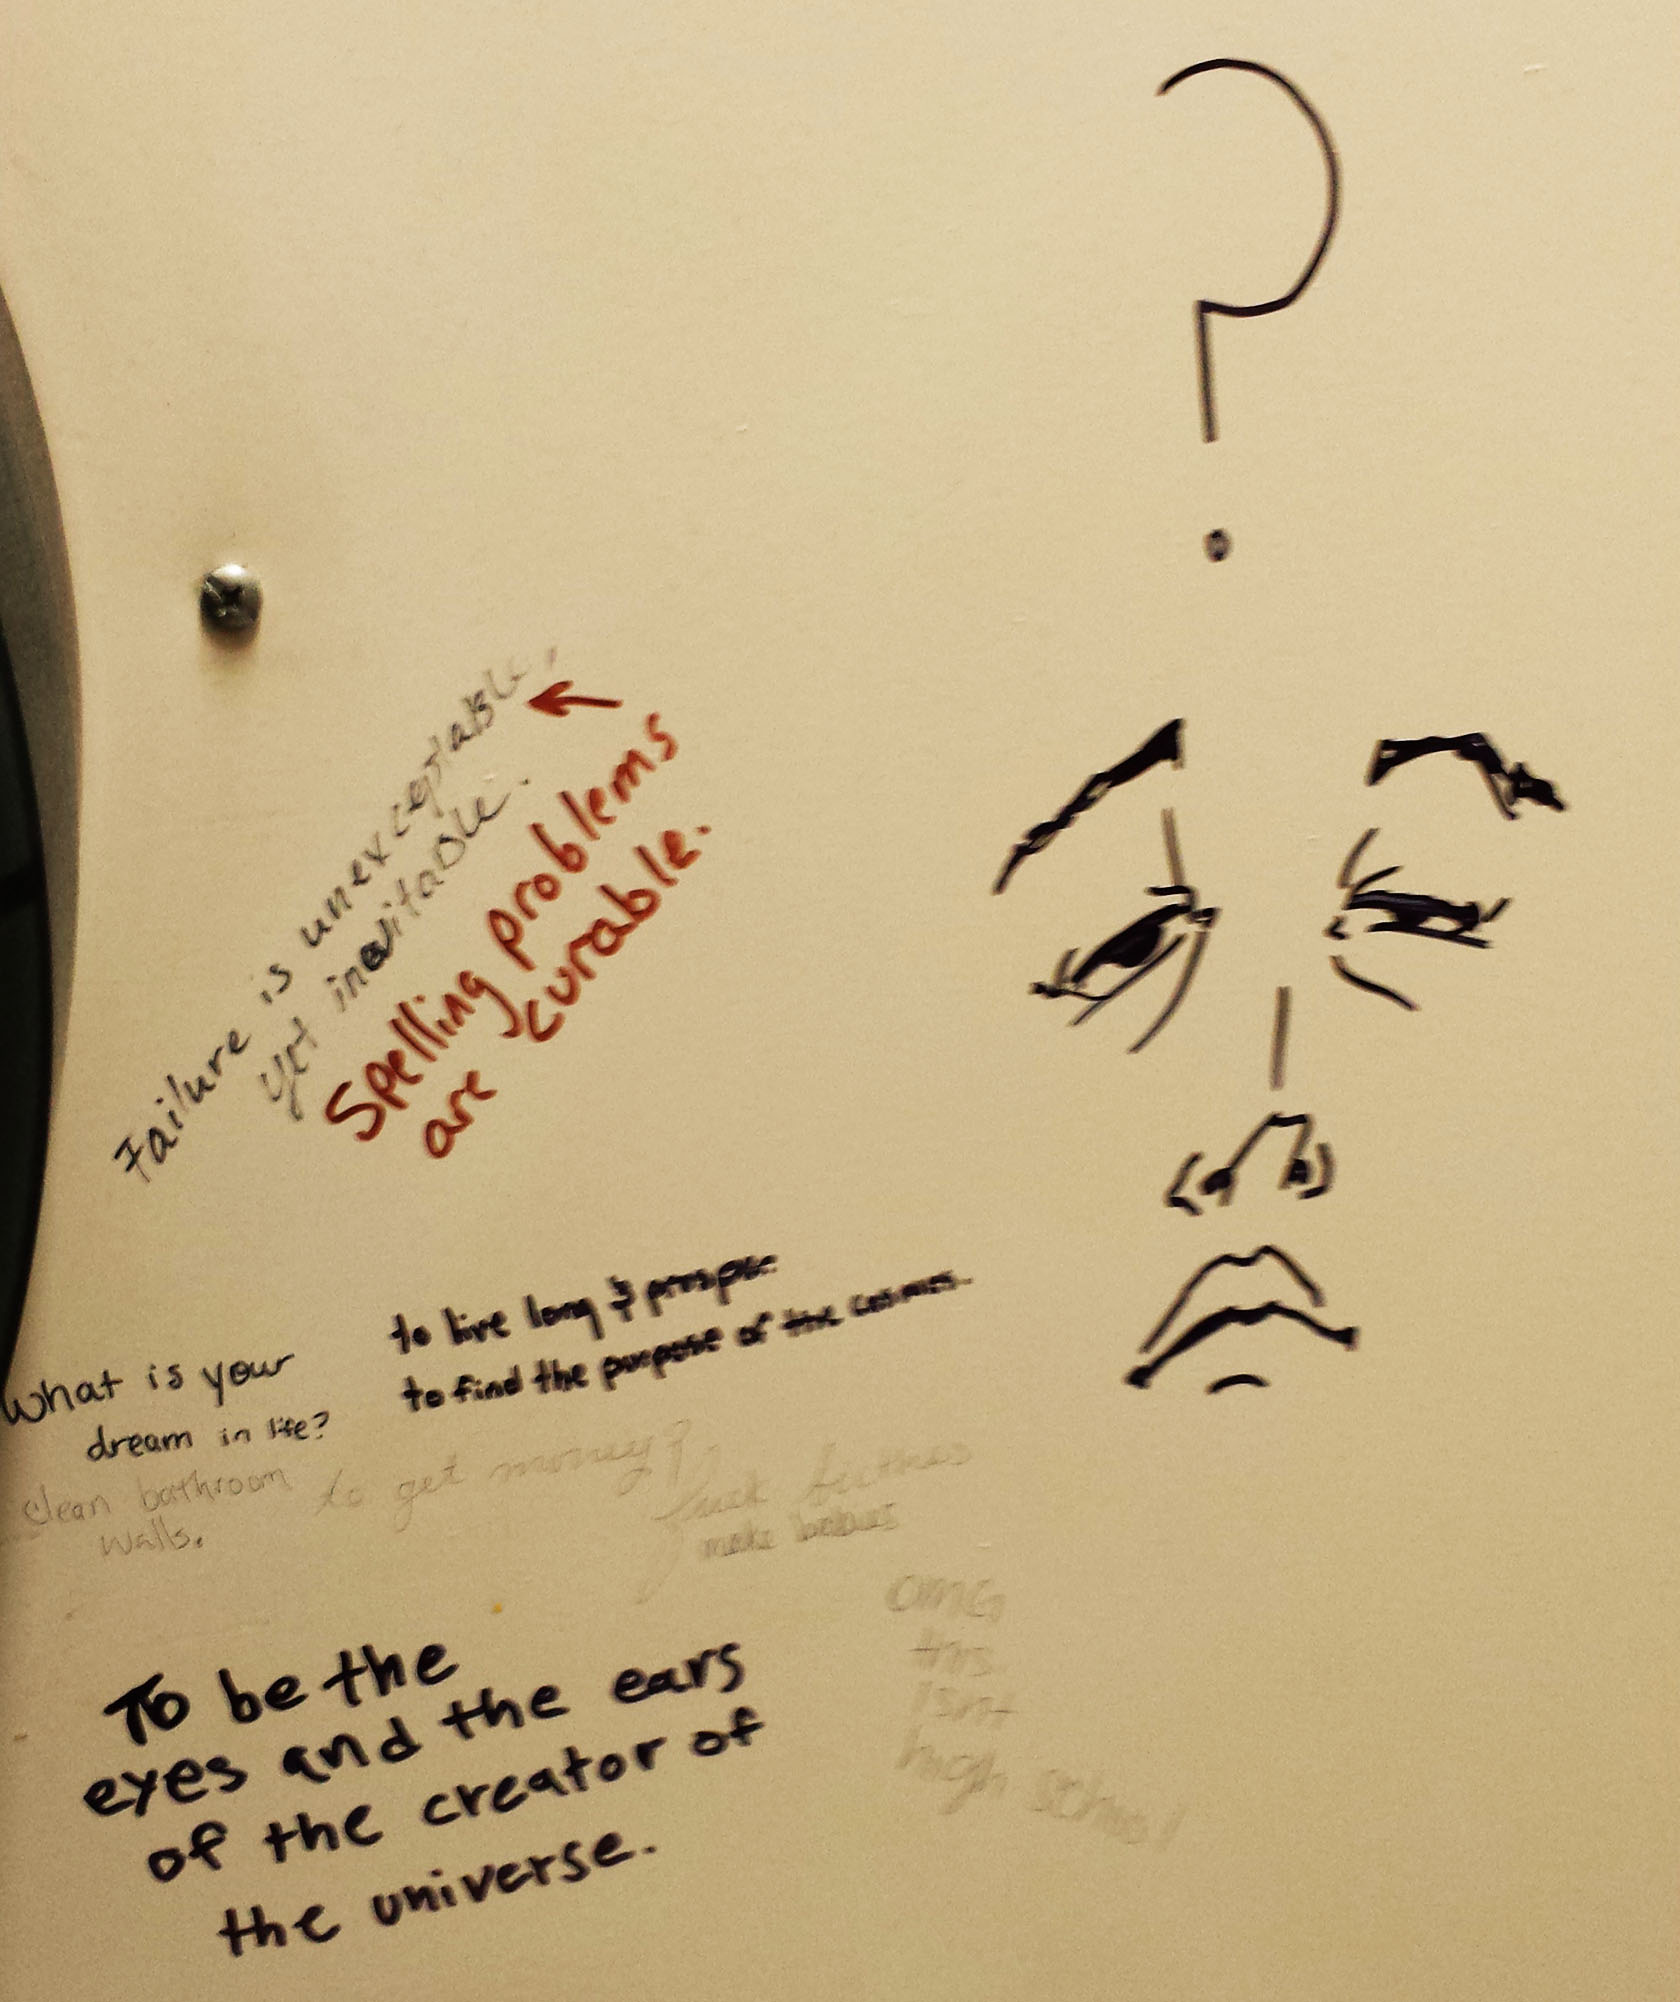 ?
Failure is unexceptable,
yet inevitable.
Spelling problems
are curable.
What is your
dream in life?
to live long & prosper
to find the purpose of the cosmos.
clean bathroom
walls.
to get money?
fuck bitches
make
OMG
this
isnt
high school
To be the
eyes and the ears
of the creator of
the universe.